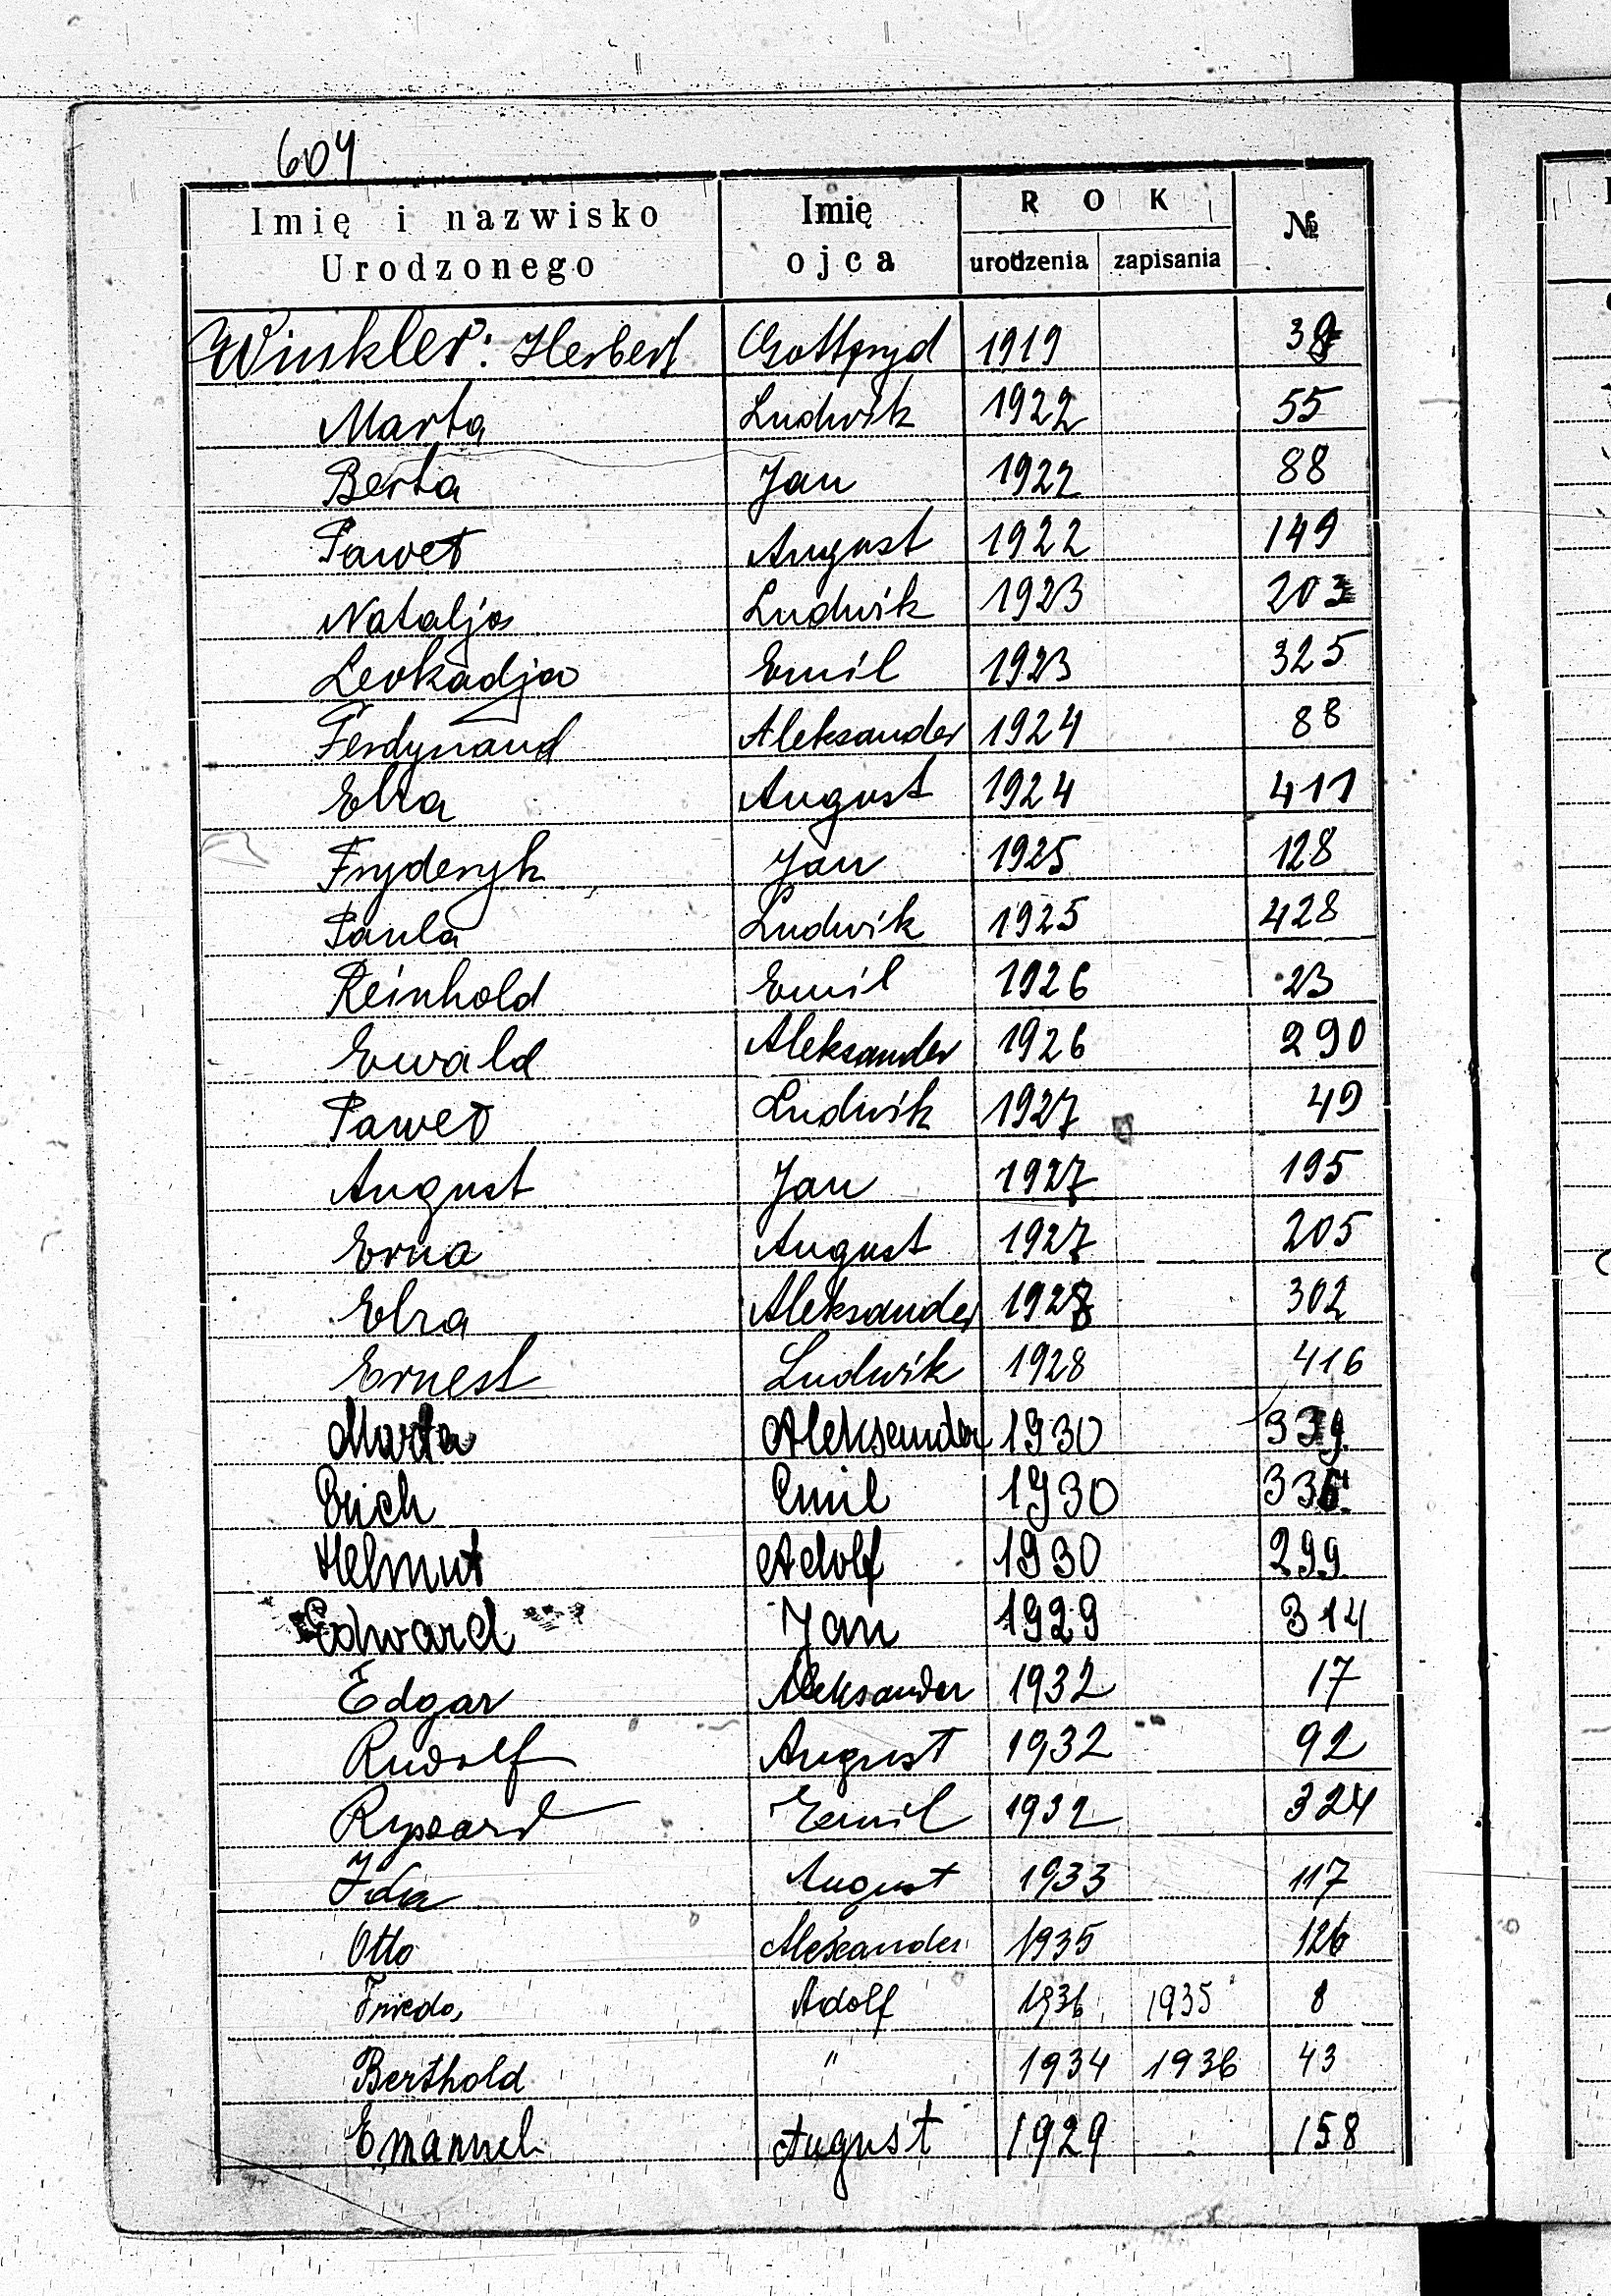 604
Imię i nazwisko Urodzonego | Imię ojca | ROK urodzenia | zapisania | №
Winkler: Herbert | Gottfryd | 1919 | | 38
Marta | Ludwik | 1922 | | 55
Berta | Jan | 1922 | | 88
Paweł | August | 1922 | | 149
Natalja | Ludwik | 1923 | | 203
Leokadja | Emil | 1923 | | 325
Ferdynand | Aleksander | 1924 | | 88
Elza | August | 1924 | | 411
Fryderyk | Jan | 1925 | | 128
Paula | Ludwik | 1925 | | 428
Reinhold | Emil | 1926 | | 23
Ewald | Aleksander | 1926 | | 290
Paweł | Ludwik | 1927 | | 49
August | Jan | 1927 | | 195
Erna | August | 1927 | | 205
Elza | Aleksander | 1928 | | 302
Ernest | Ludwik | 1928 | | 416
Marta | Aleksander | 1930 | | 339
Erich | Emil | 1930 | |
Helmut | Adolf | 1930 | | 299
Edward | Jan | 1929 | | 314
Edgar | Aleksander | 1932 | | 17
Rudolf | August | 1932 | | 92
Ryszard | Emil | 1932 | | 324
Ida | August | 1933 | | 117
Otto | Alexander | 1935 | | 126
Frieda | Adolf | 1936 | 1935 | 8
Berthold | " | 1934 | 1936 | 43
Emanuel | August | 1929 | | 158